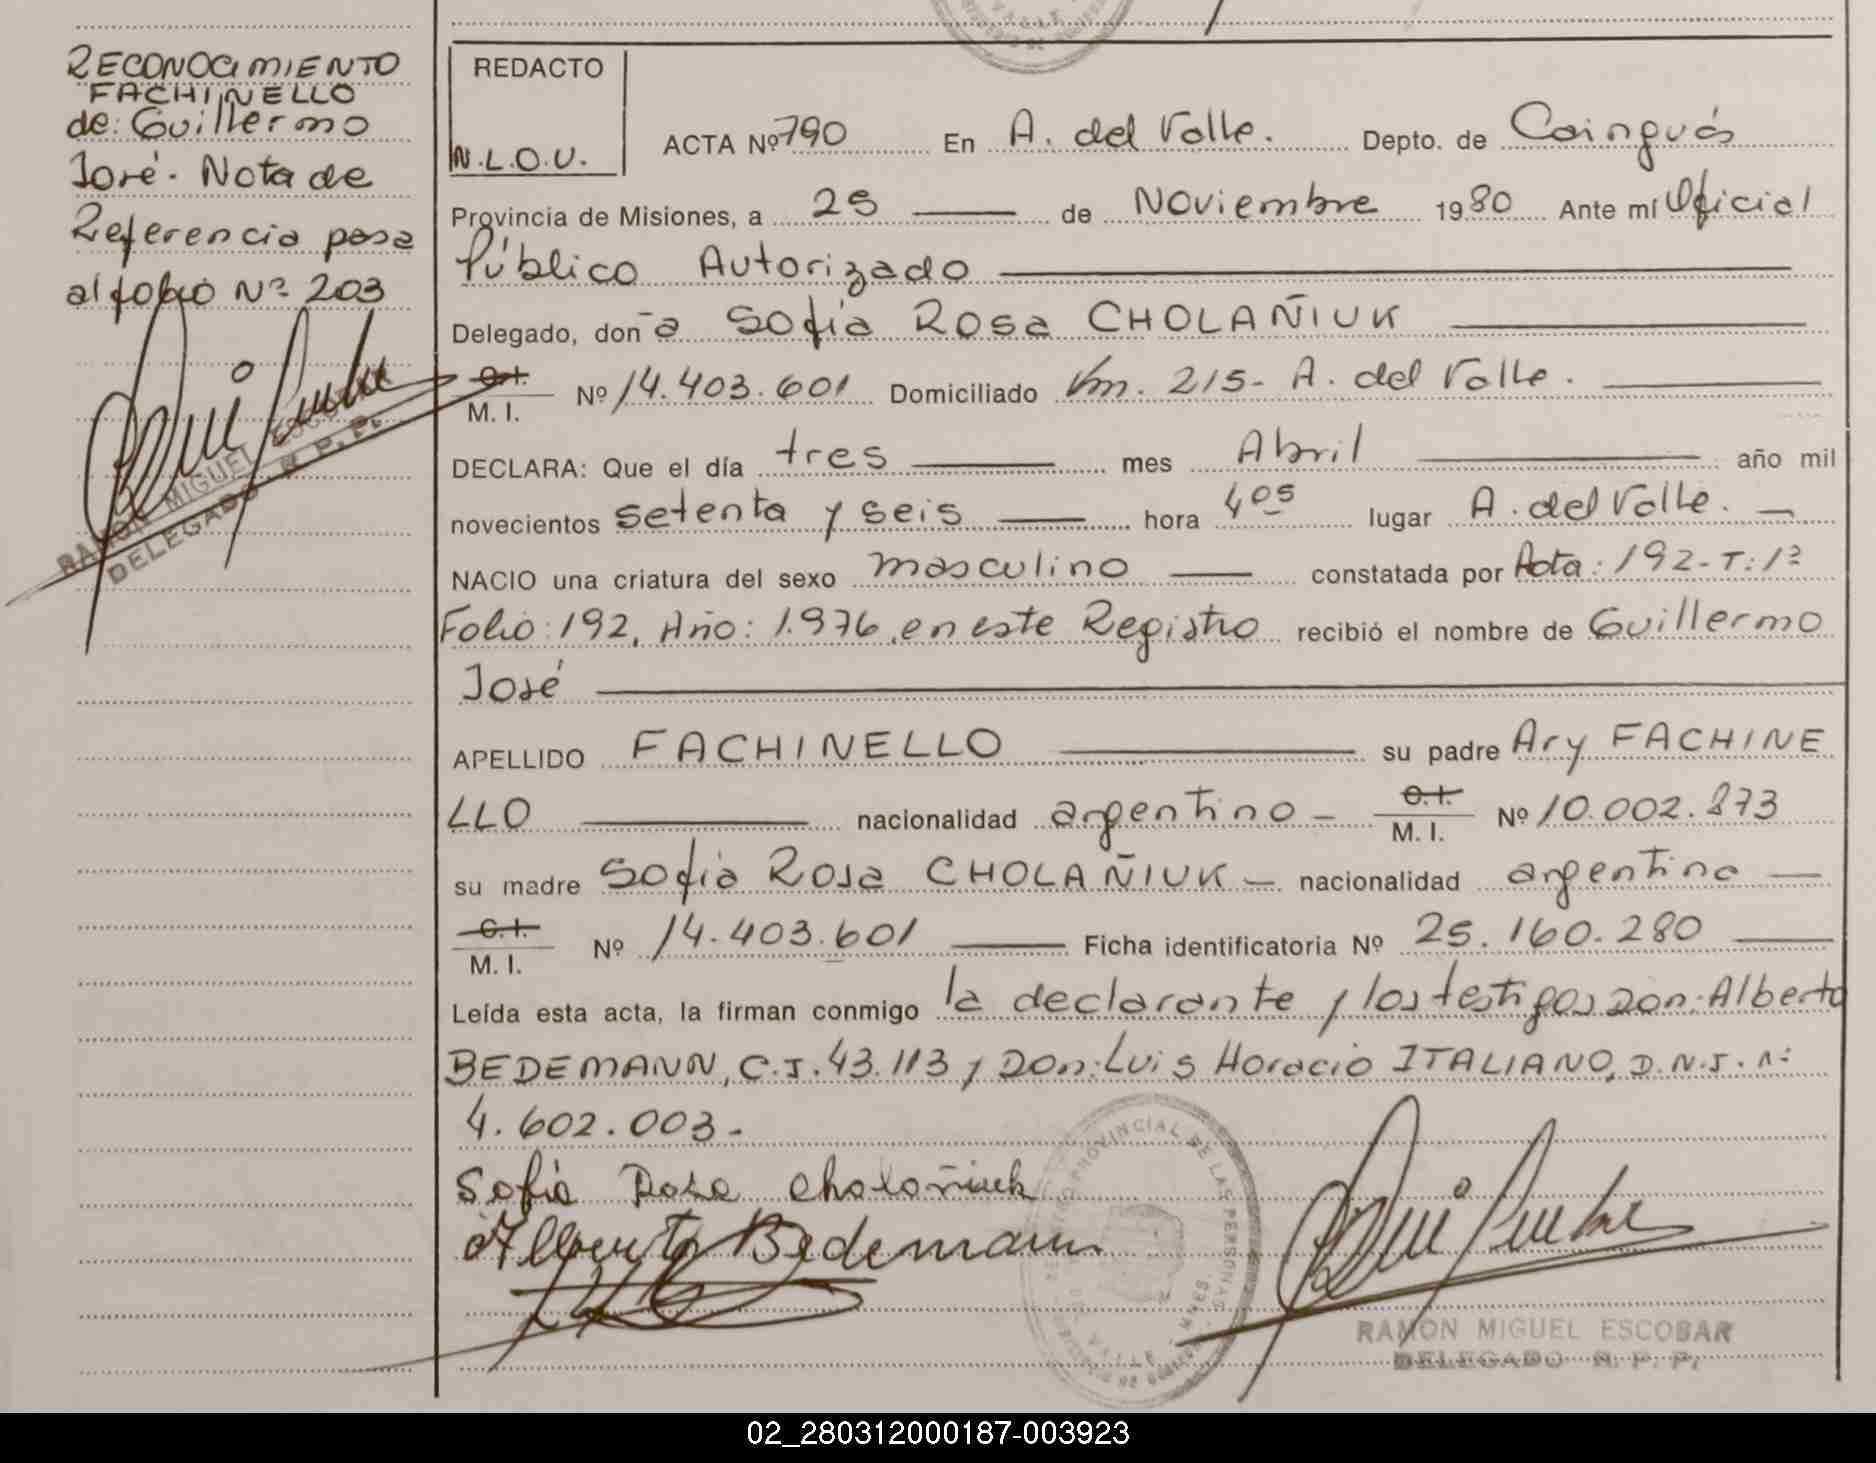 RECONOCIMIENTO
FACHINELLO
de: Guillermo
José. Nota de
Referencia pasa
al folio Nº 203
RAMON MIGUEL ESCOBAR
DELEGADO R. P. P.
REDACTO
N.L.O.U.
ACTA Nº 790 En A. del Valle. Depto. de Cainguás
Provincia de Misiones, a 25 de Noviembre 1980 Ante mí Oficial
Público Autorizado
Delegado, don-a Sofia Rosa CHOLAÑIUK
C.I.
M. I. Nº 14.403.601 Domiciliado Km. 215- A. del Valle.
DECLARA: Que el día tres mes Abril año mil
novecientos setenta y seis hora 4 05 lugar A. del Valle.
NACIO una criatura del sexo masculino constatada por Acta: 192-T: 1º
Folio: 192, Año: 1.976, en este Registro recibió el nombre de Guillermo
José
APELLIDO FACHINELLO su padre Ary FACHINE
LLO nacionalidad argentino - C.I.
M. I. Nº 10.002.873
su madre Sofia Rosa CHOLAÑIUK - nacionalidad argentina
C.I.
M. I. Nº 14.403.601 Ficha identificatoria Nº 25.160.280
Leída esta acta, la firman conmigo la declarante y los testigos Don: Alberto
BEDEMANN, C.I. 43.113 y Don: Luis Horacio ITALIANO, D.N.I. nº
4.602.003.-
Sofia Rosa Cholañiuk
Alberto Bedemann
REGISTRO PROVINCIAL DE LAS PERSONAS
RAMON MIGUEL ESCOBAR
DELEGADO R. P. P.
02_280312000187-003923